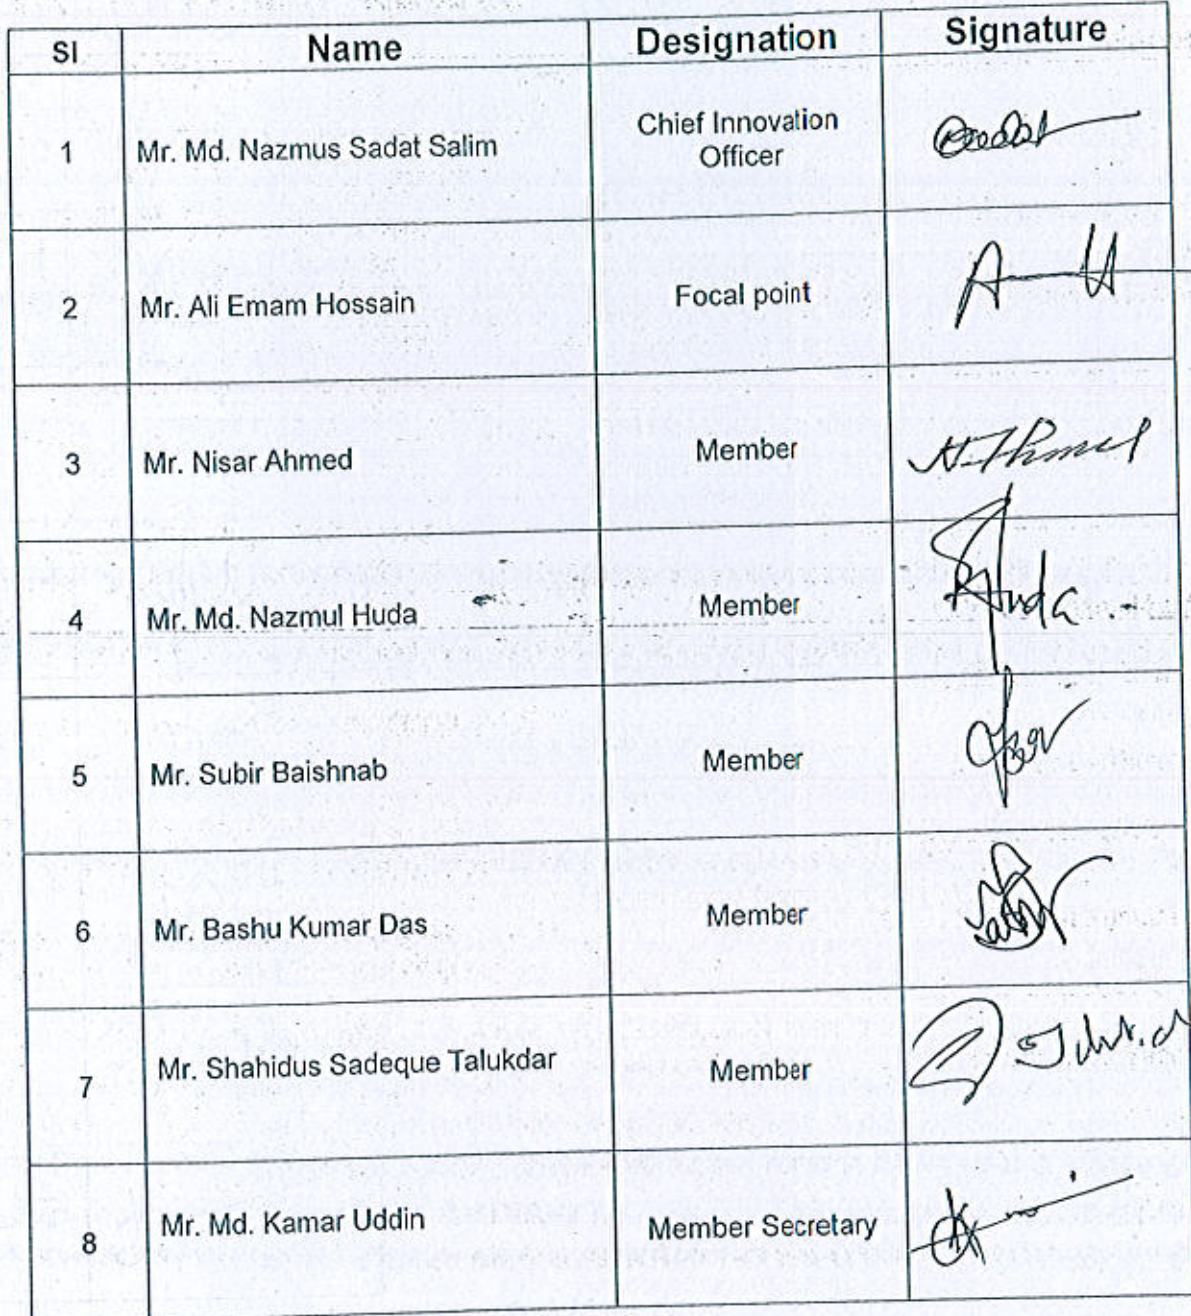 Sl Name Designation Signature
1 Mr. Md. Nazmus Sadat Salim Chief Innovation Officer
2 Mr. Ali Emam Hossain Focal point
3 Mr. Nisar Ahmed Member
4 Mr. Md. Nazmul Huda Member Huda
5 Mr. Subir Baishnab Member
6 Mr. Bashu Kumar Das Member
7 Mr. Shahidus Sadeque Talukdar Member
8 Mr. Md. Kamar Uddin Member Secretary